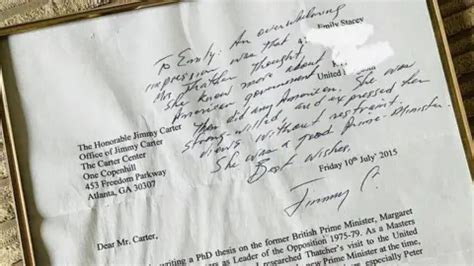 Emily Stacey
To Emily: An overwhelming
impression was that
Mrs Thatcher thought
she knew more about
American government
than did any American. She was
strong-willed, and expressed her
views without restraint.
She was a good Prime-Minister.
Best wishes,
Jimmy C.
United
The Honorable Jimmy Carter
Office of Jimmy Carter
The Carter Center
One Copenhill
453 Freedom Parkway
Atlanta, GA 30307
Friday 10th July' 2015
Dear Mr. Carter,
writing a PhD thesis on the former British Prime Minister, Margaret
as Leader of the Opposition 1975-79. As a Masters
researched Thatcher's visit to the United
new Prime Minister at the time,
especially Peter